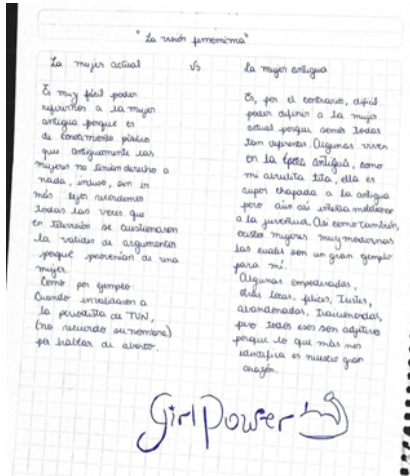 "La visión femenina"
La mujer actual vs La mujer antigua
Es muy fácil poder
referirnos a la mujer
antigua porque es
de conocimiento público
que antiguamente las
mujeres no tenían derecho a
nada, incluso, sin ir
más lejos recordemos
todas las veces que
en televisión se cuestionaron
la validez de argumentos
porque provenían de una
mujer.
Como por ejemplo:
Cuando invalidaron a
la periodista de TVN,
(no recuerdo su nombre)
por hablar de aborto.
Es, por el contrario, difícil
poder definir a la mujer
actual porque somos todas
tan diferentes. Algunas viven
en la época antigua, como
mi abuelita tita, ella es
super chapada a la antigua
pero aún así
a la juventud. Así como también,
existen mujeres muy modernas
las cuales son un gran ejemplo
para mí.
Algunas empoderadas,
otras locas, felices, tristes,
abandonadas, traicionadas,
pero todos esos son adjetivos
porque lo que más nos
identifica es nuestro gran
corazón.
Girl Power